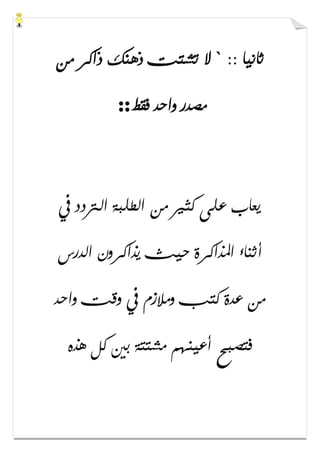 ثانيا :: ` لا تشتت ذهنك ذاكر من
مصدر واحد فقط::
يعاب على كثير من الطلبة التردد في
أثناء المذاكرة حيث يذاكرون الدرس
من عدة كتب وملازم في وقت واحد
فتصبح أعينهم مشتتة بين كل هذه